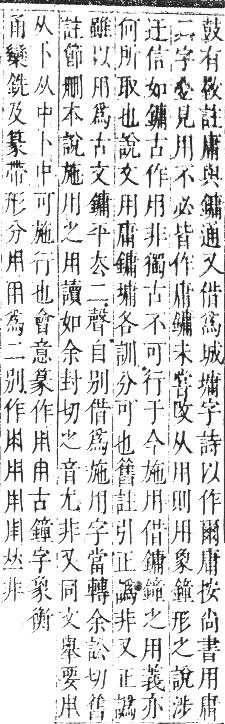 鼓有斁註庸與鏞通又借爲城墉字詩以作爾庸按尚書用庸
二字叠見用不必皆作庸鏞未嘗改从用則用象鐘形之說涉
迂信如鏞古作用非獨古不可行于今施用借鏞鐘之用義亦
何所取也說文用庸鏞墉各訓分可也舊註引正譌非又正譌
雖以用爲古文鏞平去二聲自別借爲施用字當轉余訟切舊
註節刪本說施用之用讀如余封切之音尤非又同文舉要用
从卜从中卜中可施行也會意篆作用用古鐘字象衡
甬欒銑及篆帶形分用用爲二別作